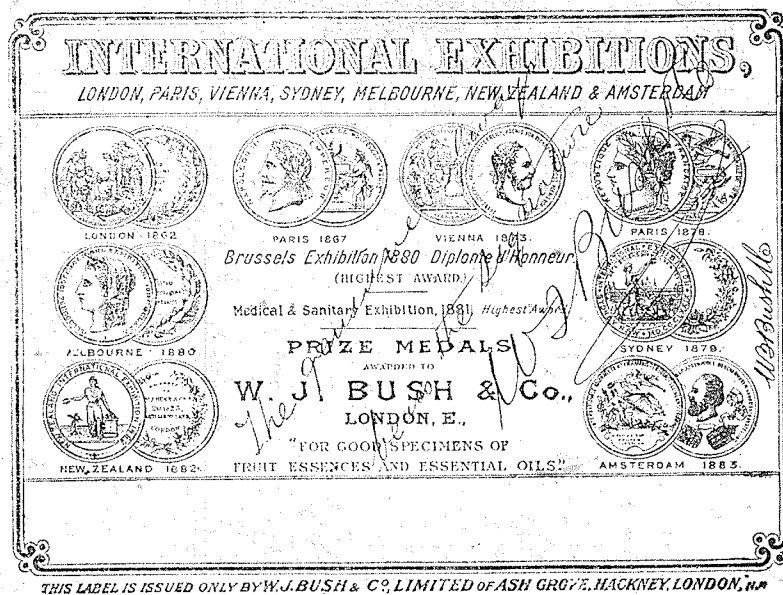 INTERNATIONAL EXHIBITIONS,
LONDON, PARIS, VIENNA, SYDNEY, MELBOURNE, NEW ZEALAND & AMSTERDAM
LONDON 1862
PARIS 1867
VIENNA 1873.
PARIS 1878.
Brussels Exhibition 1880 Diplome d'Honneur
(HIGHEST AWARD.)
Medical & Sanitary Exhibition, 1881, Highest Award
MELBOURNE 1880
SYDNEY 1879.
PRIZE MEDALS
AWARDED TO
W. J. BUSH & Co.,
LONDON, E.,
"FOR GOOD SPECIMENS OF
FRUIT ESSENCES AND ESSENTIAL OILS."
NEW ZEALAND 1882.
AMSTERDAM 1883.
The genuine
bear the signature
W J Bush & Co
W J Bush & Co
THIS LABEL IS ISSUED ONLY BY W. J. BUSH & Co, LIMITED OF ASH GROVE, HACKNEY, LONDON,